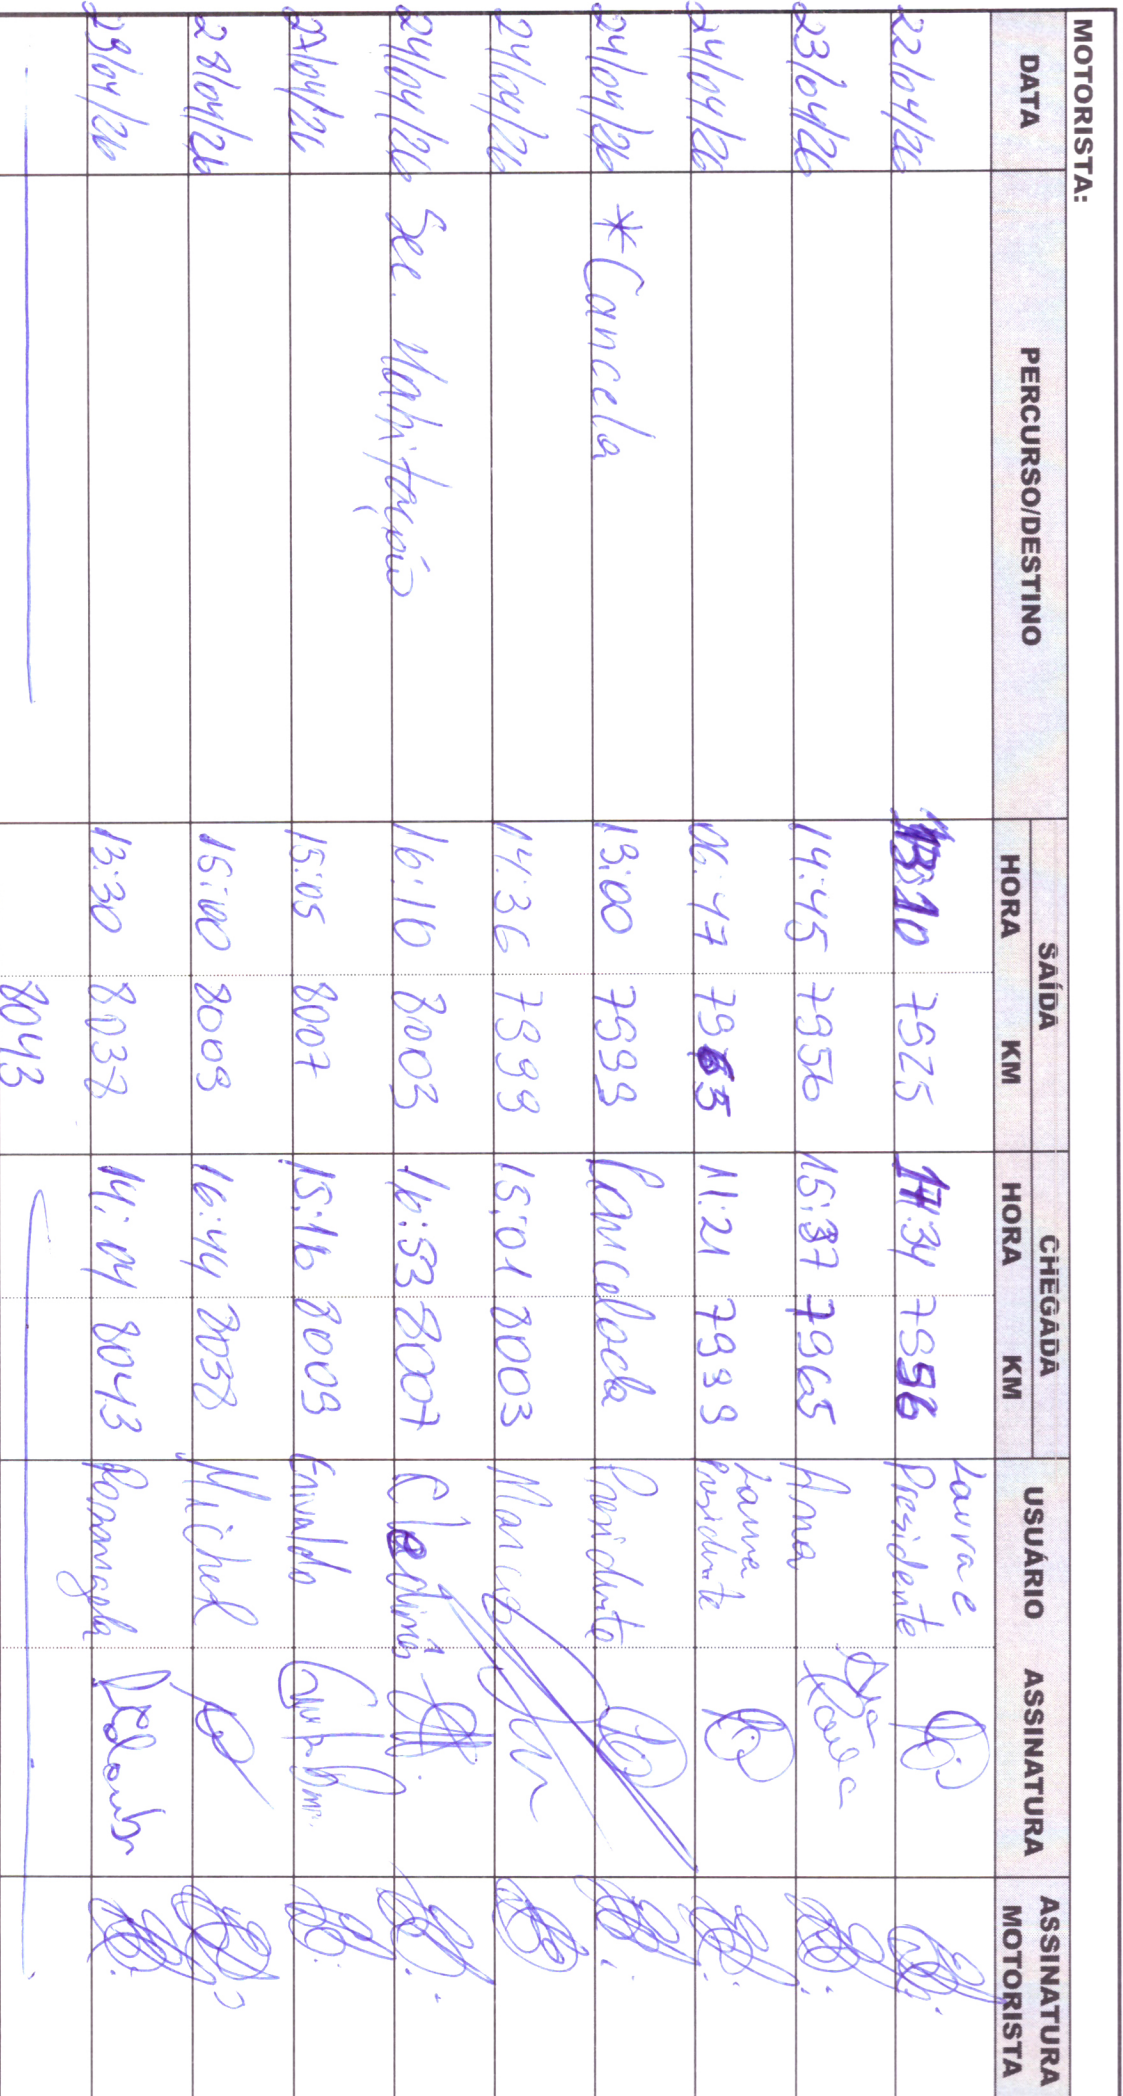 MOTORISTA:
DATA PERCURSO/DESTINO SAÍDA CHEGADA USUÁRIO ASSINATURA ASSINATURA MOTORISTA
HORA KM HORA KM
22/04/26 13:10 7925 17:34 7956 Laura e Presidente
23/04/26 14:45 7956 15:37 7965 Anna Ana Paula
24/04/26 06:47 7965 11:21 7999 Laura Presidente
24/04/26 *Cancela 13:00 7999 Cancelada Presidente
24/04/26 14:36 7999 15:01 8003 Marcos
24/04/26 Sec. Habitação 16:10 8003 16:53 8007
27/04/26 15:05 8007 15:16 8009 Erivaldo
28/04/26 15:00 8009 16:44 8038 Michel
29/04/26 13:30 8038 14:04 8043 Rosangela
8043